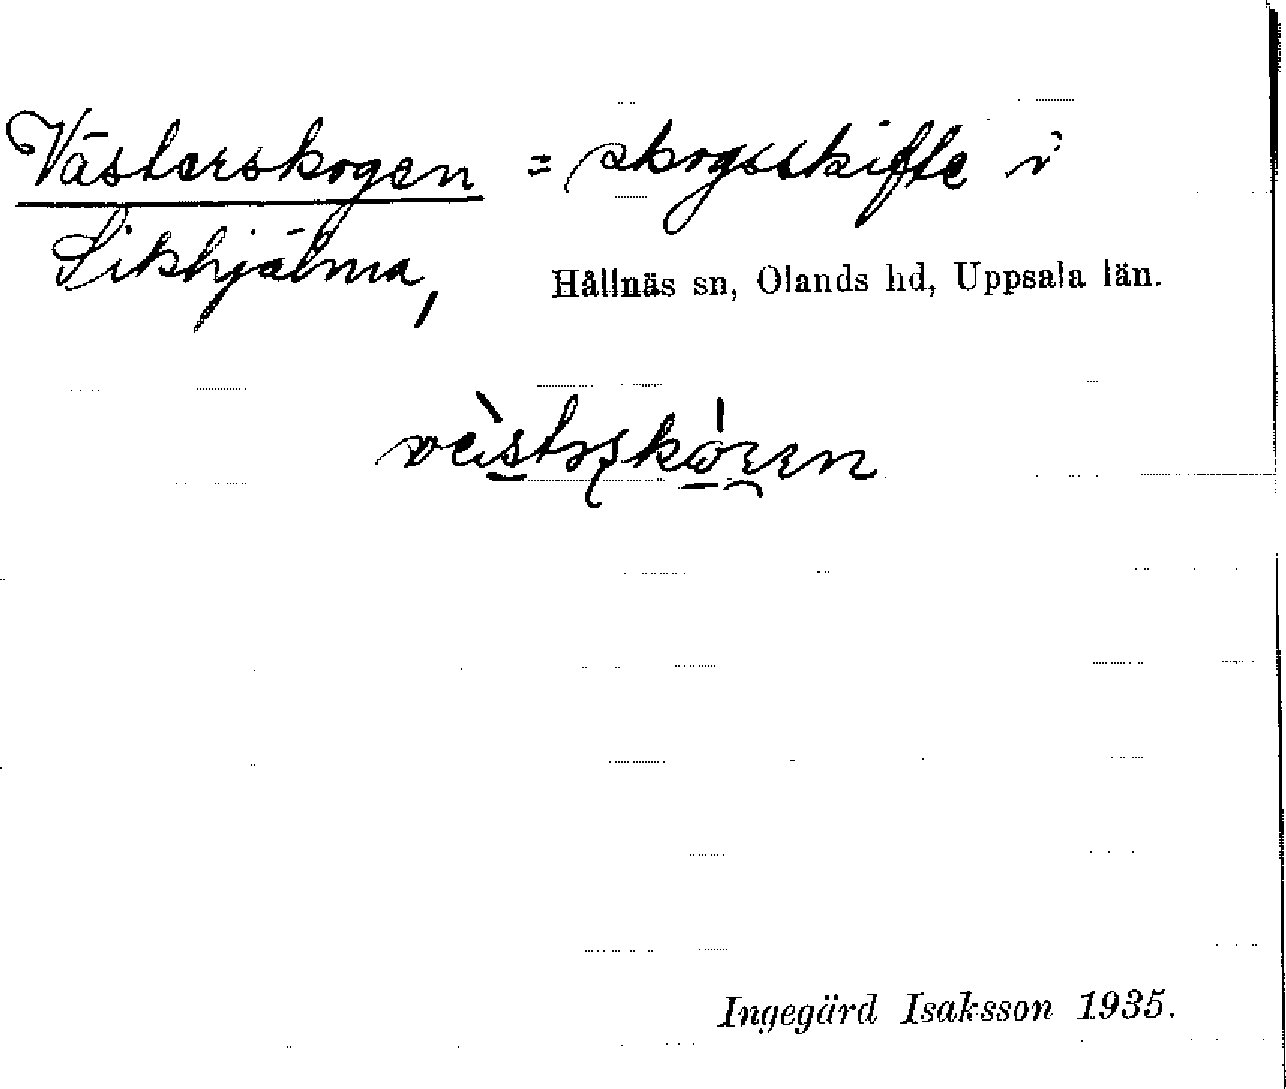 Västerskogen = skogsskifte i
Sikhjälma,
Hållnäs sn, Olands hd, Uppsala län.
Ingegärd Isaksson 1935.